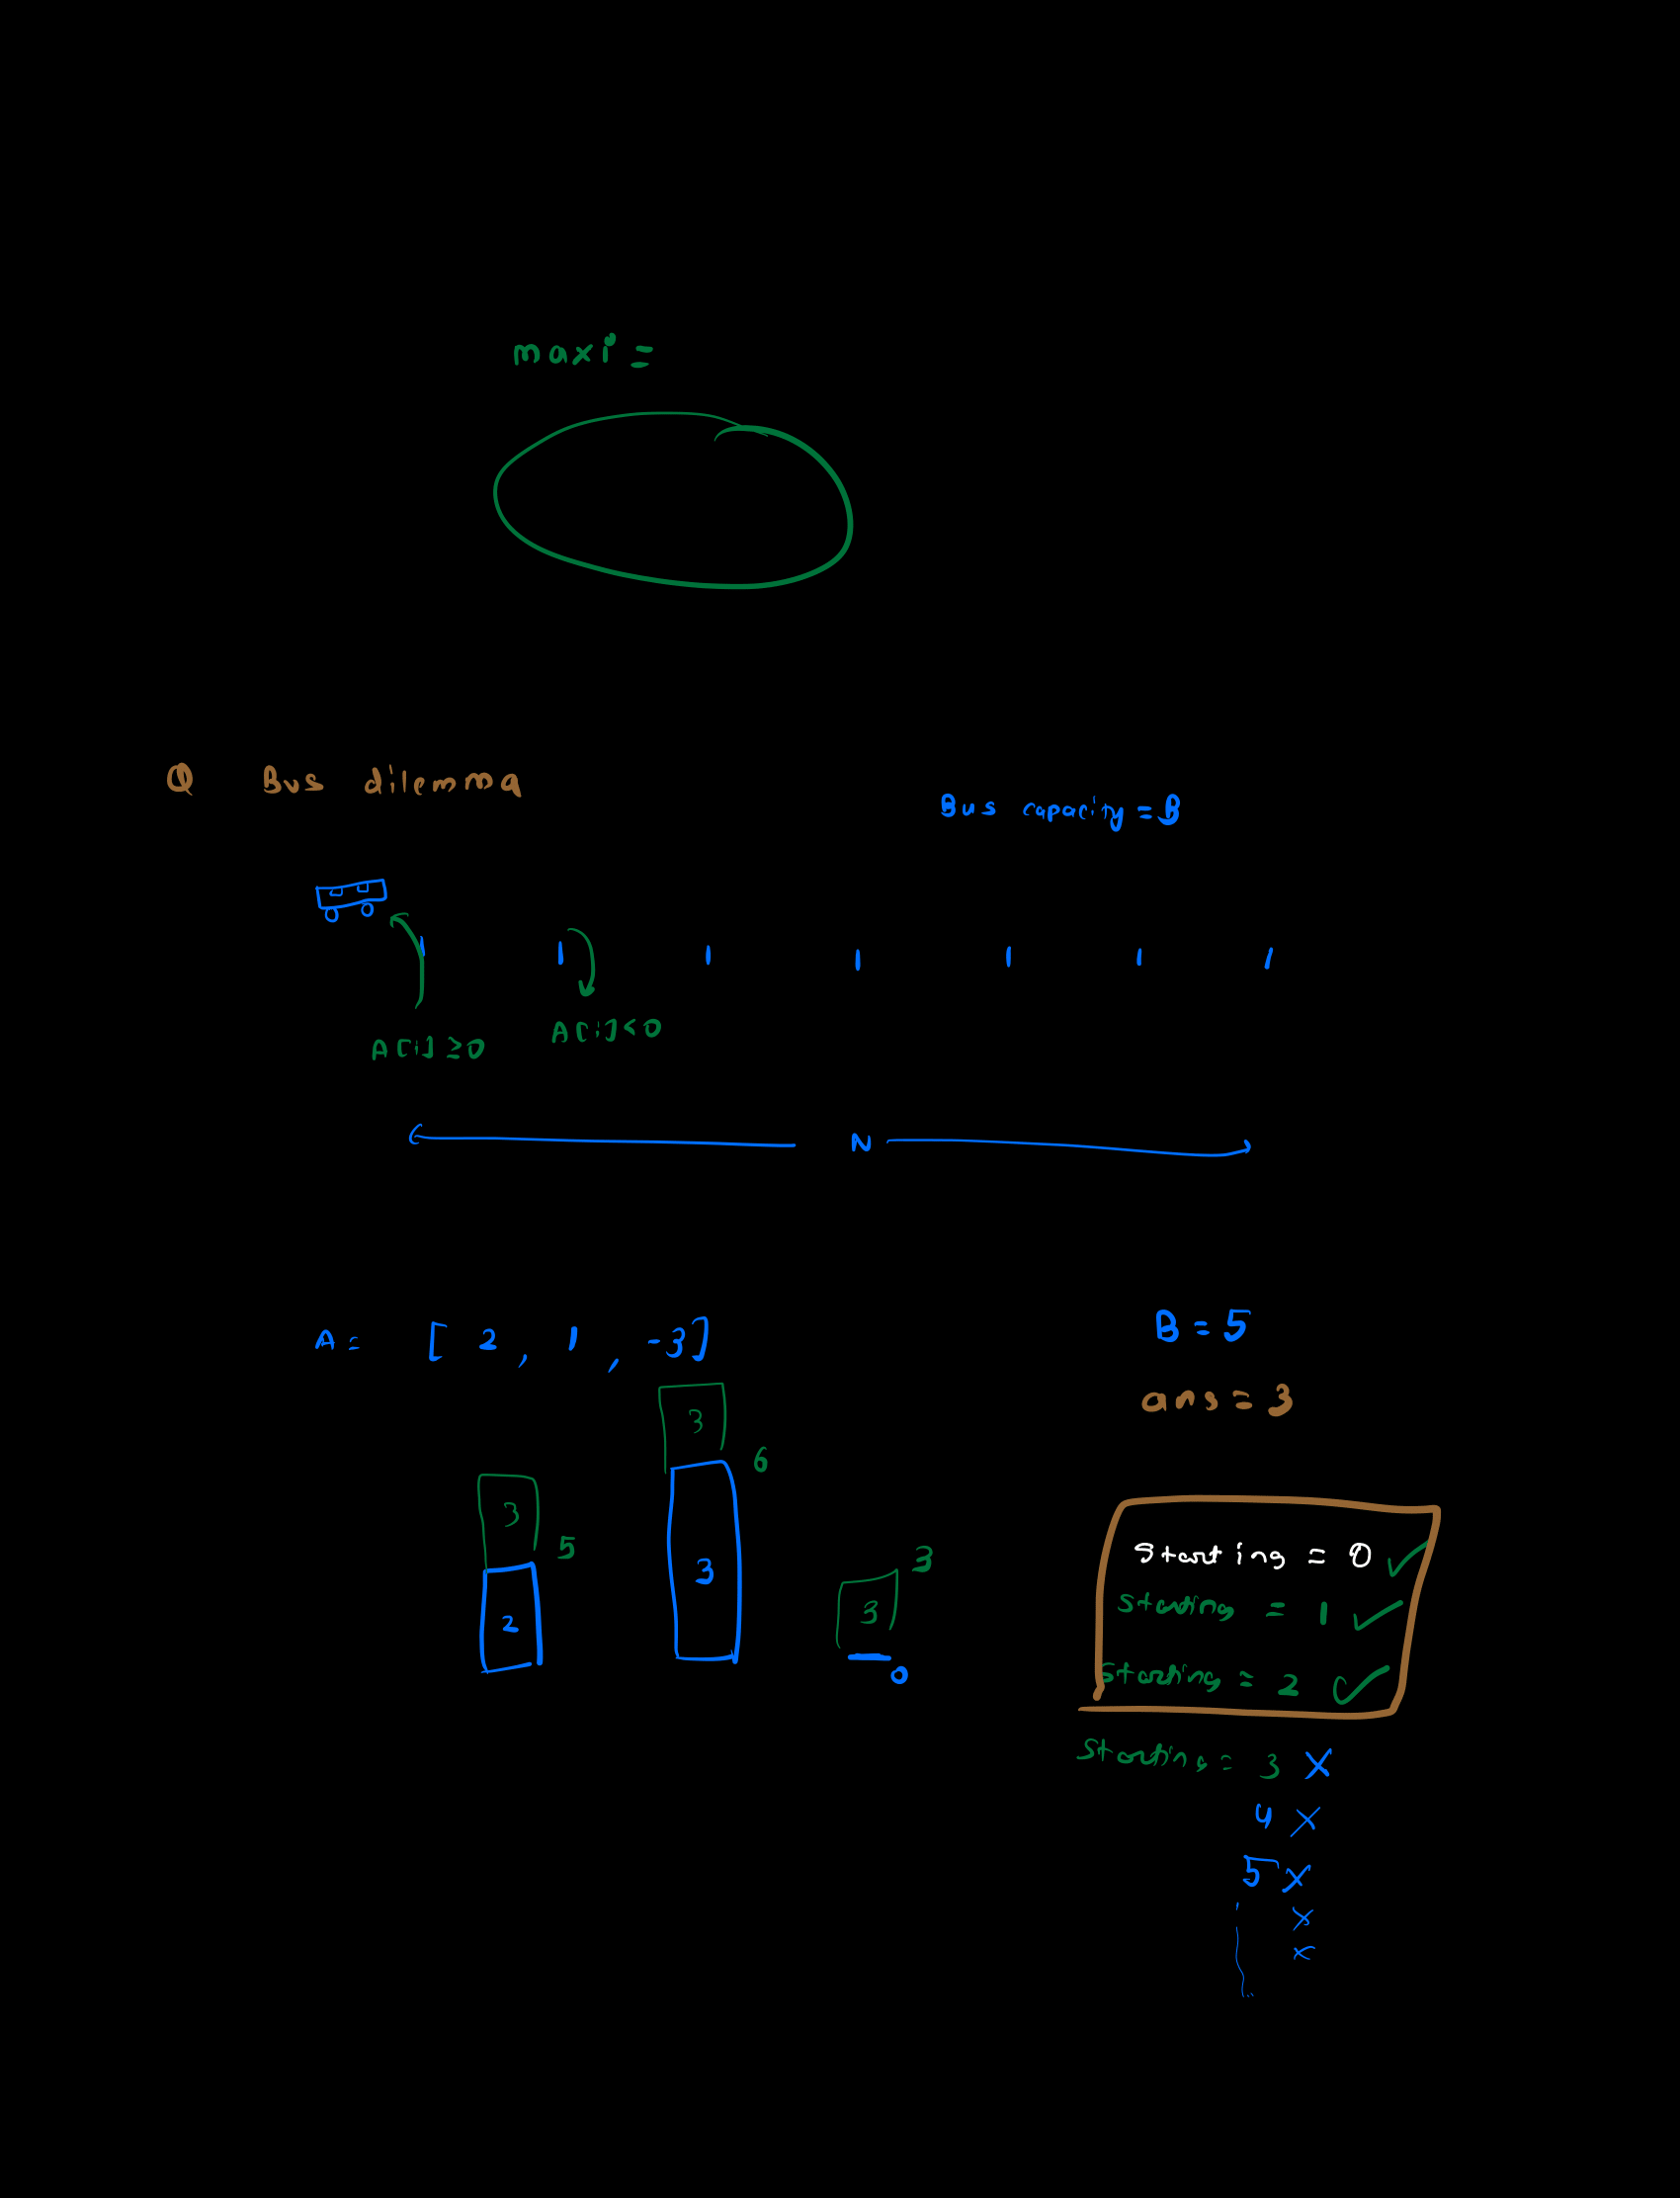 maxi =
Q Bus dilemma
Bus capacity = B
A[i] ≥ 0
A[i] < 0
N
A = [ 2 , 1 , -3 ]
B = 5
ans = 3
3
6
3
5
3
3
3
2
0
Starting = 0 ✓
Starting = 1 ✓
Starting = 2 ✓
Starting = 3 X
4 X
5 X
X
X